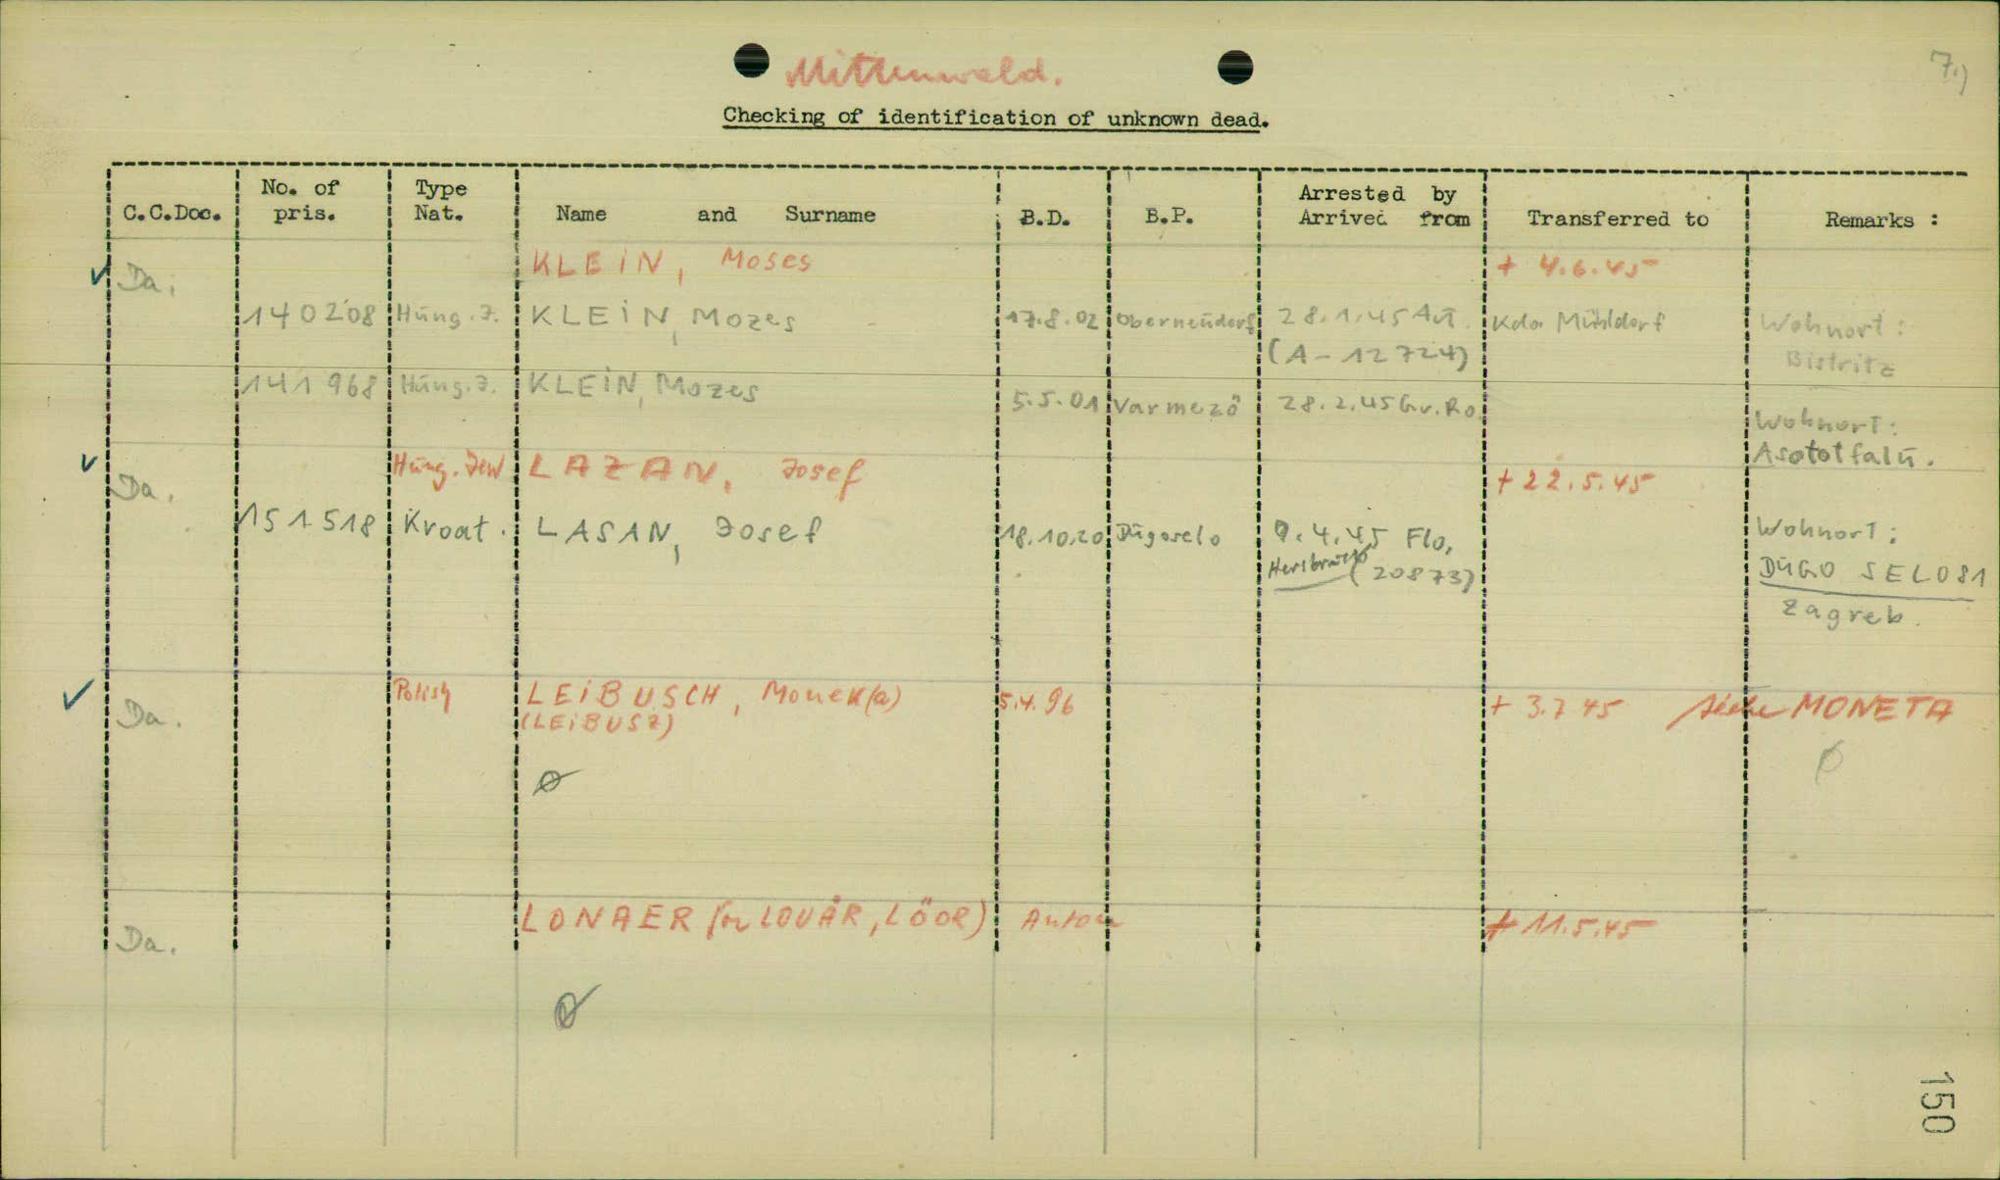 Mittenwald.
7.)
Checking of identification of unknown dead.
C.C.Doc. No. of pris. Type Nat. Name and Surname B.D. B.P. Arrested by Arrived from Transferred to Remarks :
KLEIN, Moses + 4.6.45
Da.
140208 Hung. J. KLEIN, Mozes 17.8.02 Oberneudorf 28.1.45 Au. Kdo. Mühldorf Wohnort :
(A-12724) Bistritz
141968 Hung. J. KLEIN, Mozes 5.5.01 Varmezö 28.2.45 Gr. Ro. Wohnort :
Asototfalu.
Hung. Jew LAZAN, Josef + 22.5.45
Da.
151518 Kroat. LASAN, Josef 18.10.20 Dugoselo 9.4.45 Flo. Wohnort :
Hersbruck (20873) DUGO SELO 81
Zagreb.
Polish LEIBUSCH, Monek(a) 5.4.96 + 3.7 45 siehe MONETA
Da. (LEIBUSZ)
Ø Ø
LONAER (or LOUAR, LÖOR) Anton + 11.5.45
Da.
Ø
150